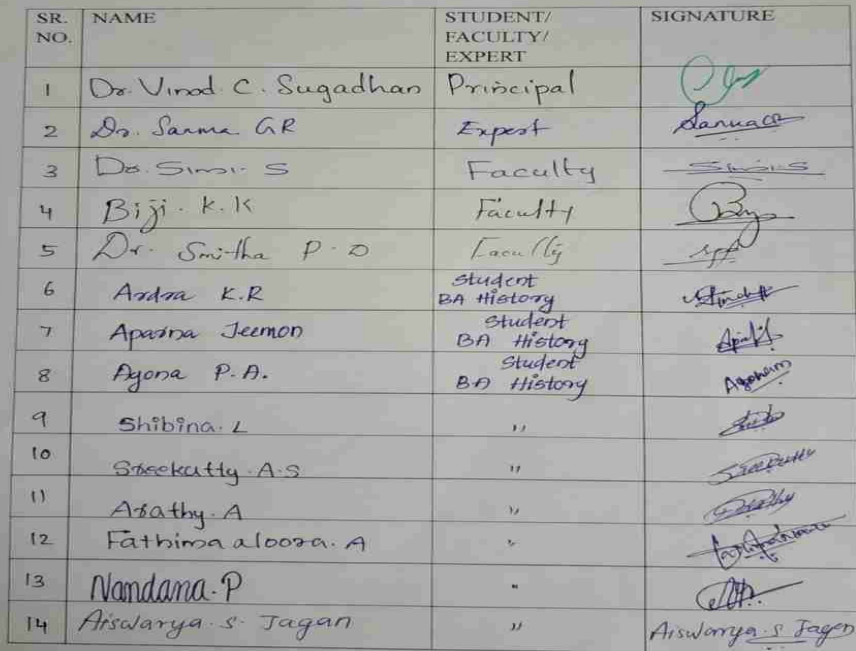 SR. NO. NAME STUDENT/ FACULTY/ EXPERT SIGNATURE
1 Dr. Vinod. C. Sugadhan Principal
2 Dr. Sarma GR Expert
3 Dr. Simi. S Faculty Simi.S
4 Biji. K.K Faculty
5 Dr. Smitha P.O Faculty
6 Ardra K.R Student BA History
7 Aparna Jeemon Student BA History
8 Agona P.A. Student BA History
9 Shibina. L "
10 Sreekutty. A.S " Sreekutty
11 Arathy. A " Arathy
12 Fathima aloora. A "
13 Nandana. P "
14 Aiswarya. S. Jagan " Aiswarya. S Jagan